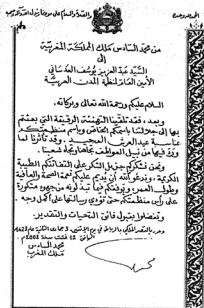 الحمد لله وحده
والصلاة والسلام على مولانا رسول الله وآله وصحبه
من محمد السادس ملك المملكة المغربية
إلى
السيد عبد العزيز يوسف العدساني
الأمين العام لمنظمة المدن العربية
السلام عليكم ورحمة الله تعالى وبركاته
وبعد، فقد تلقينا التهنئة الرقيقة التي بعثتم
بها إلى جلالتنا باسمكم الخاص وباسم منظمتكم
بمناسبة عيد العرش المجيد. وقد تأثرنا لما
فيها من نبيل العواطف تجاهنا وتجاه شعبنا.
ونحن نشكركم جزيل الشكر على التفاتتكم الطيبة
الكريمة، وندعو الله أن يديم عليكم نعمة الصحة والعافية
وطول العمر، ويوفقكم فيما تبذلونه من جهود مشكورة
على رأس منظمتكم حتى تؤدي رسالتها على أكمل وجه.
وتفضلوا بقبول فائق التحيات والتقدير.
وحرر بالقصر الملكي بالرباط في يوم الاثنين
محمد السادس
ملك المغرب